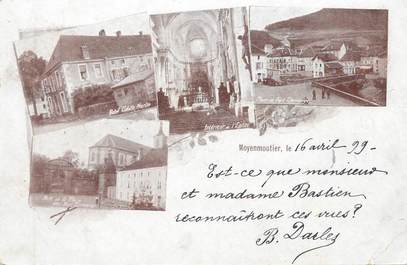 Hôtel Colette Martin
Intérieur de l'Eglise
Moyenmoutier, le 16 avril 99-
Est-ce que monsieur
et madame Bastien
reconnaîtront ces vues?
B. Darles